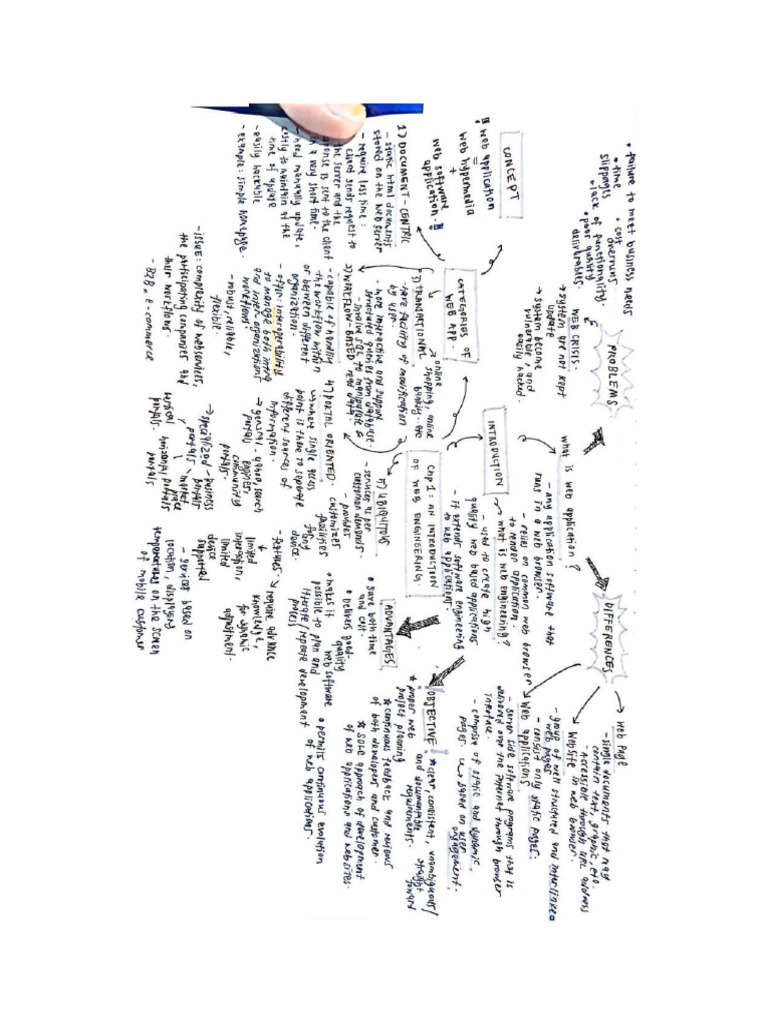 PROBLEMS
• failure to meet business needs
• time slippages
• cost overruns
• lack of functionality
• poor quality deliverables
WEB CRISIS
→ system are not kept update
→ system become vulnerable, and easily hacked.
CONCEPT
web application
=
web hypermedia
+
web software application
CATEGORIES OF WEB APP.
1) DOCUMENT-CENTRIC
- static html documents stored on the web server
- require less time:
client sends request to
the server and the
response is sent to the client
in a very short time.
- need manually update,
costly to maintain at the
time of update
- easily hackable
- example: simple homepage.
2) TRANSACTIONAL
→ online shopping, online banking. etc
- have facility of modification
by user.
- more interactive and support
structured queries from database.
- involve SQL to manipulate
3) WORKFLOW-BASED
- capable of handle
the workflow within
or between different
organization.
- often interoperability
to manage both intra
and inter-organizations
workflows.
- robust, reliable,
flexible.
- issue: complexity of webservices,
the participating companies and
their workflows.
- B2B, e-commerce
4) PORTAL ORIENTED.
where single access
point is there to separate
different sources of
information.
→ general - yahoo, search
engines,
community
portals
→ specialized - business
portals
market place
portals
INTRODUCTION
what is web application?
- any application software that
runs in a web browser.
- relies on common web browser
to render application.
what is web engineering?
- used to create high
quality web based applications
- it extends software engineering
to web applications.
Chp 1: AN INTRODUCTION
OF WEB ENGINEERING
5) UBIQUITOUS
- services as per
customer demands.
- provides
customizes
facilities
any
device.
- features → require advance
knowledge,
for dynamic
adjustment.
limited
interaction,
limited
device
supported
- services based on
location, displayed
on the screen
of mobile customer
DIFFERENCES
Web Page
- simple documents that may
contain text, graphic, etc.
- accessible through URL address
in web browser.
Website
- group of well structured and interlinked
web pages
- consist only static pages.
Web applications
- server side software programs that is
delivered over the internet through browser
interface.
- comprise of static and dynamic
pages
↳ based on user
engagement.
ADVANTAGES
• save both time
and cost.
• delivers good-
quality
web software
• makes it
possible to plan and
iterate/repeat development
phases
• permits continuous evolution
of web applications.
OBJECTIVE
★ clear, consistent, unambiguous/
straight forward
and documentable
requirements.
★ proper web
project planning
★ continuous feedback and reviews
of both developers and customer.
★ sole approach of development
of web applications and websites.